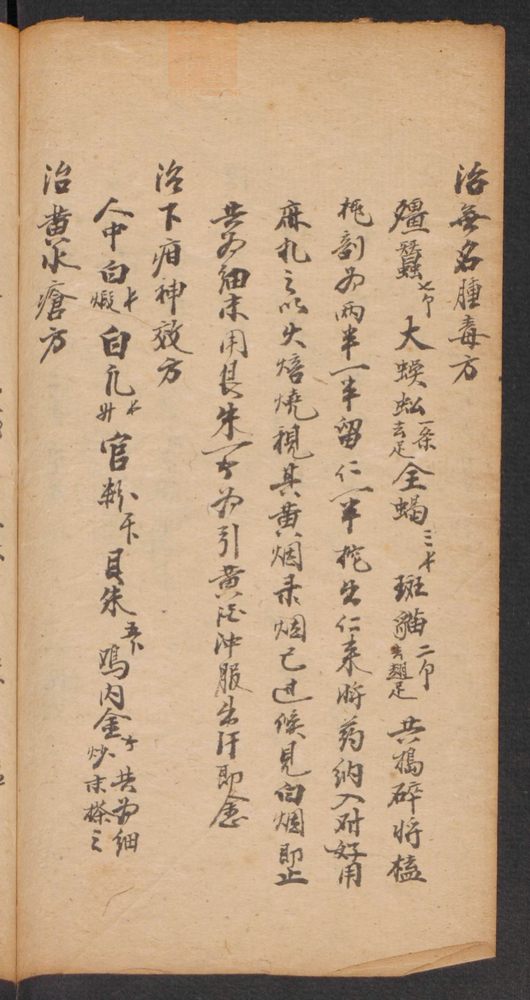 治無名腫毒方
殭蠶七个大蜈蚣一条去足全蝎三个斑貓二个去翅足共搗碎將核
桃剖为两半一半留仁一半挖出仁来將药納入对好用
麻扎之以火焙燒視其黄烟黑烟已过候見白烟即止
共为細末用良朱一分为引黄酒沖服出汗即愈
治下疳神效方
人中白煅白凡官粉貝朱鸡内金炒共为細末搽之
治黄水瘡方